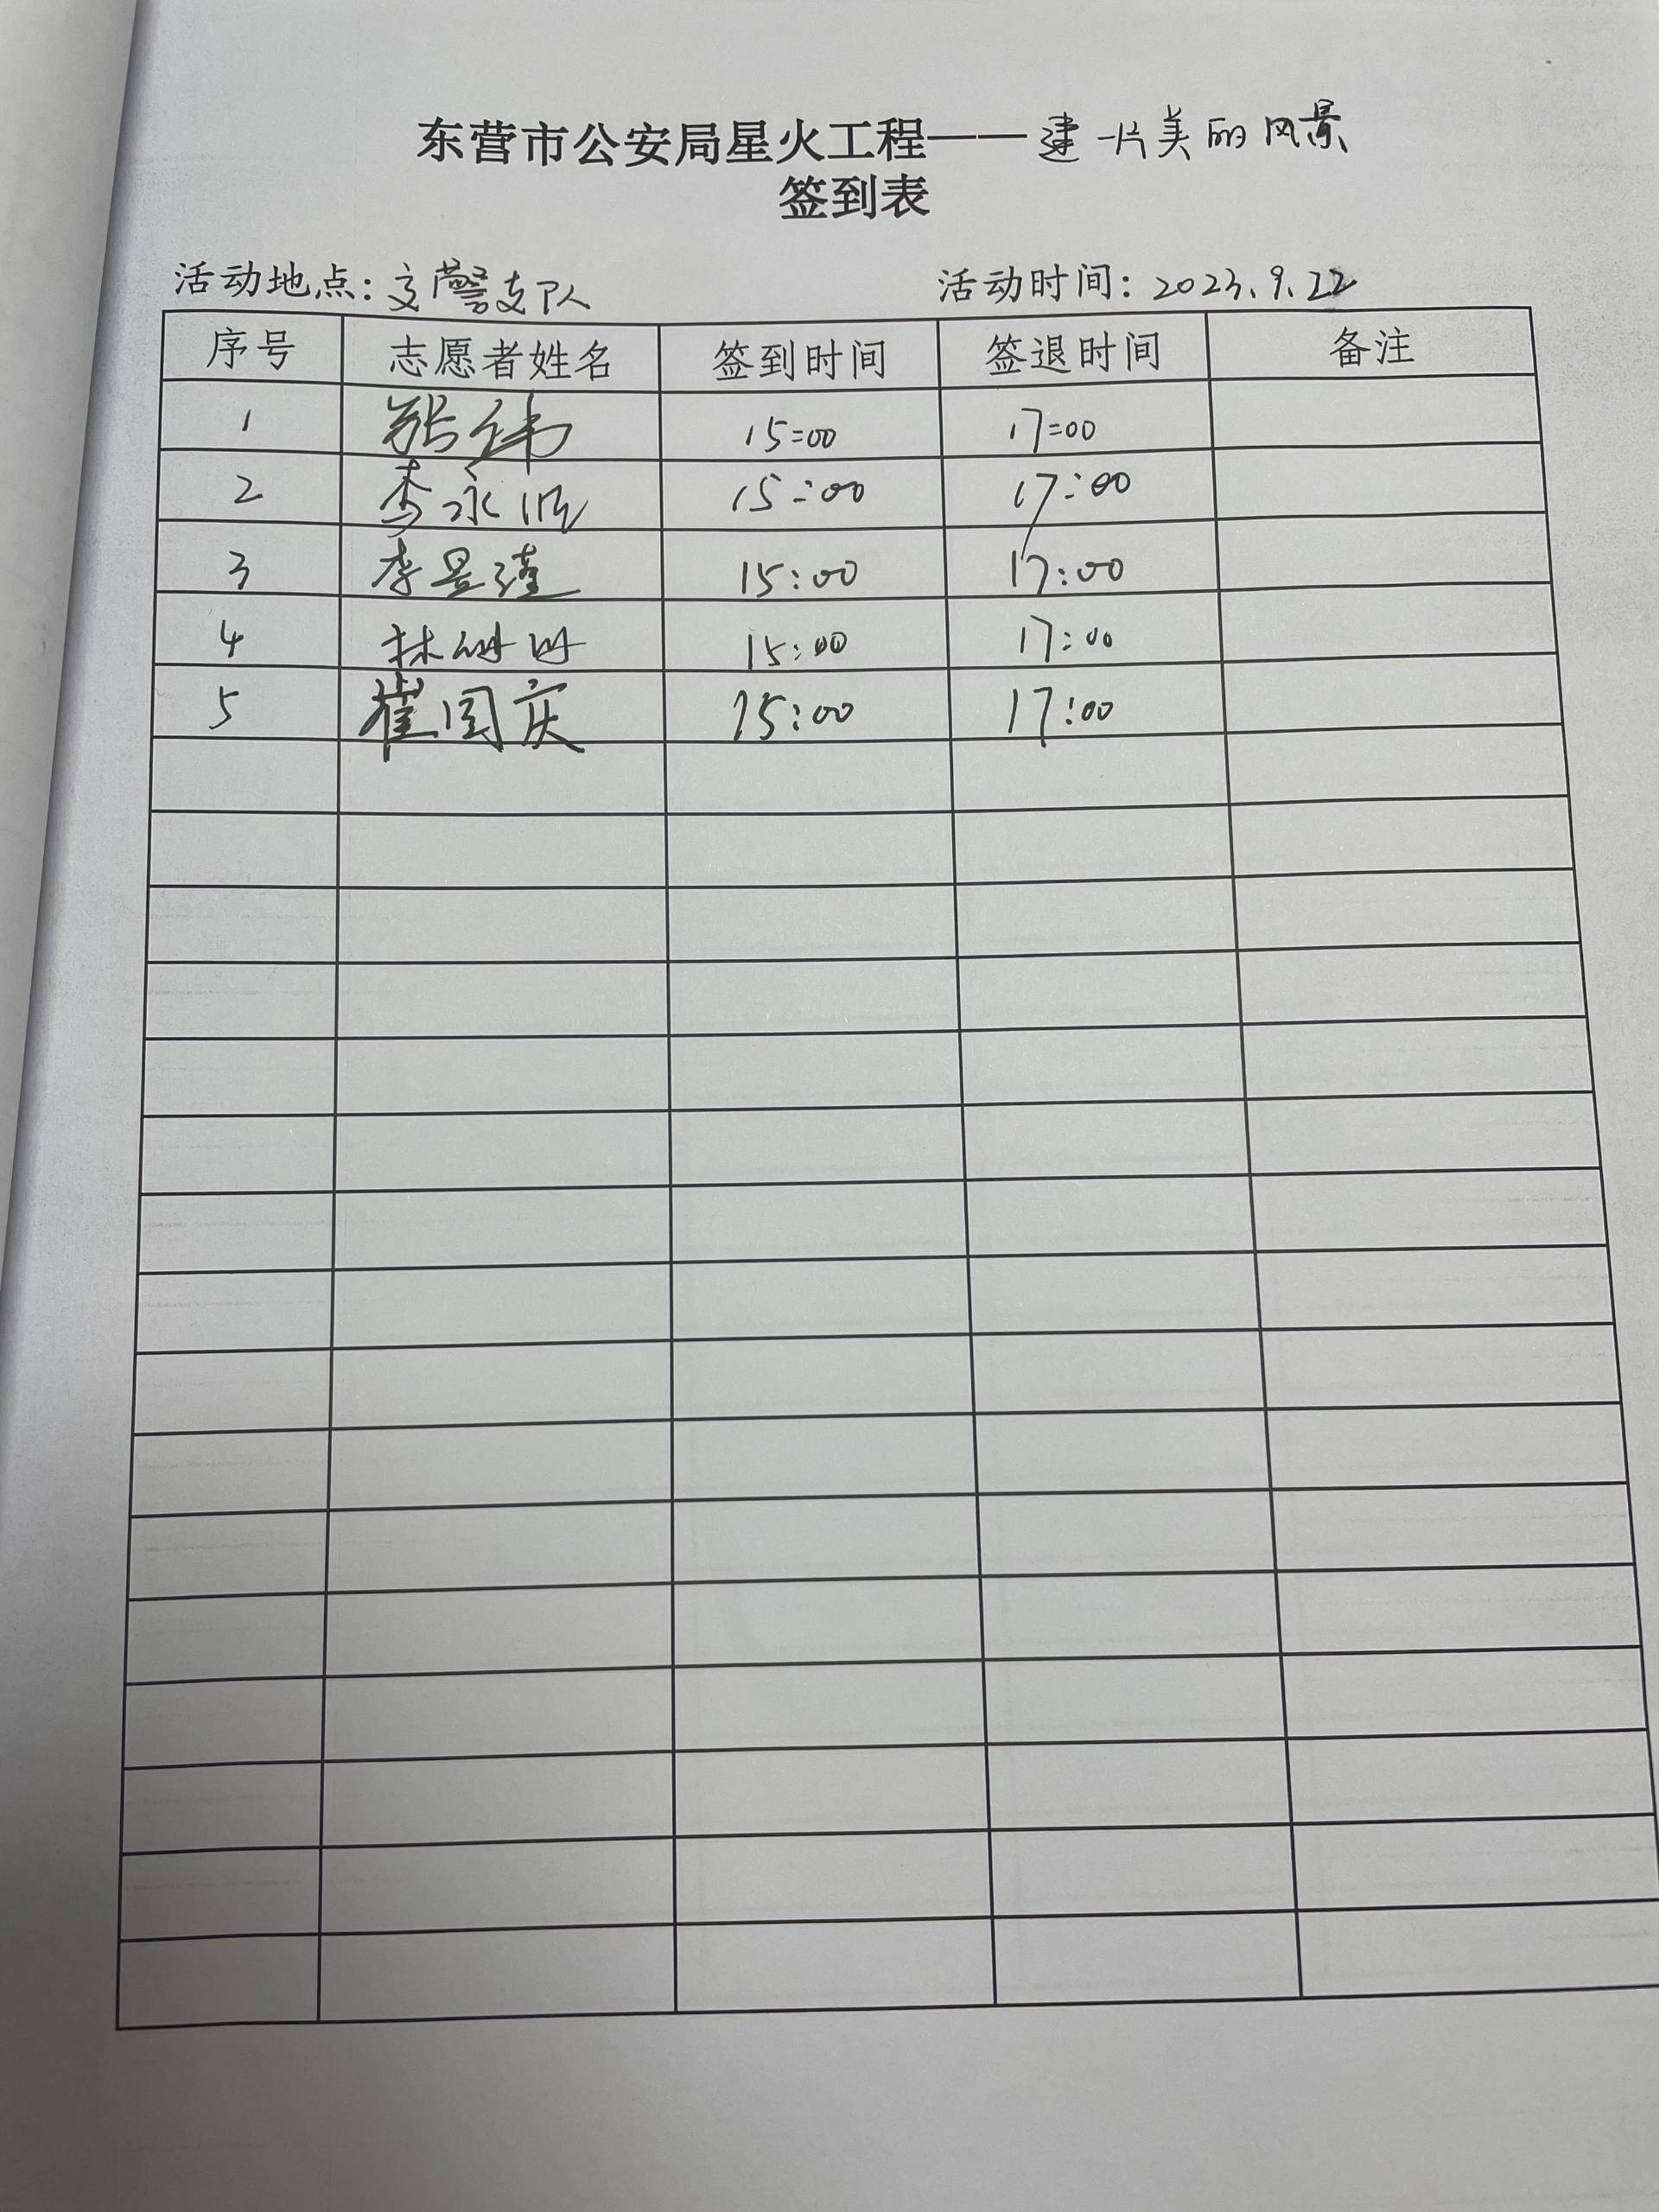 东营市公安局星火工程——建一片美丽风景
签到表
活动地点：交警支队 活动时间：2023.9.22
序号 志愿者姓名 签到时间 签退时间 备注
1 张伟 15:00 17:00
2 李永 15:00 17:00
3 李昱瑾 15:00 17:00
4 林 15:00 17:00
5 崔国庆 15:00 17:00